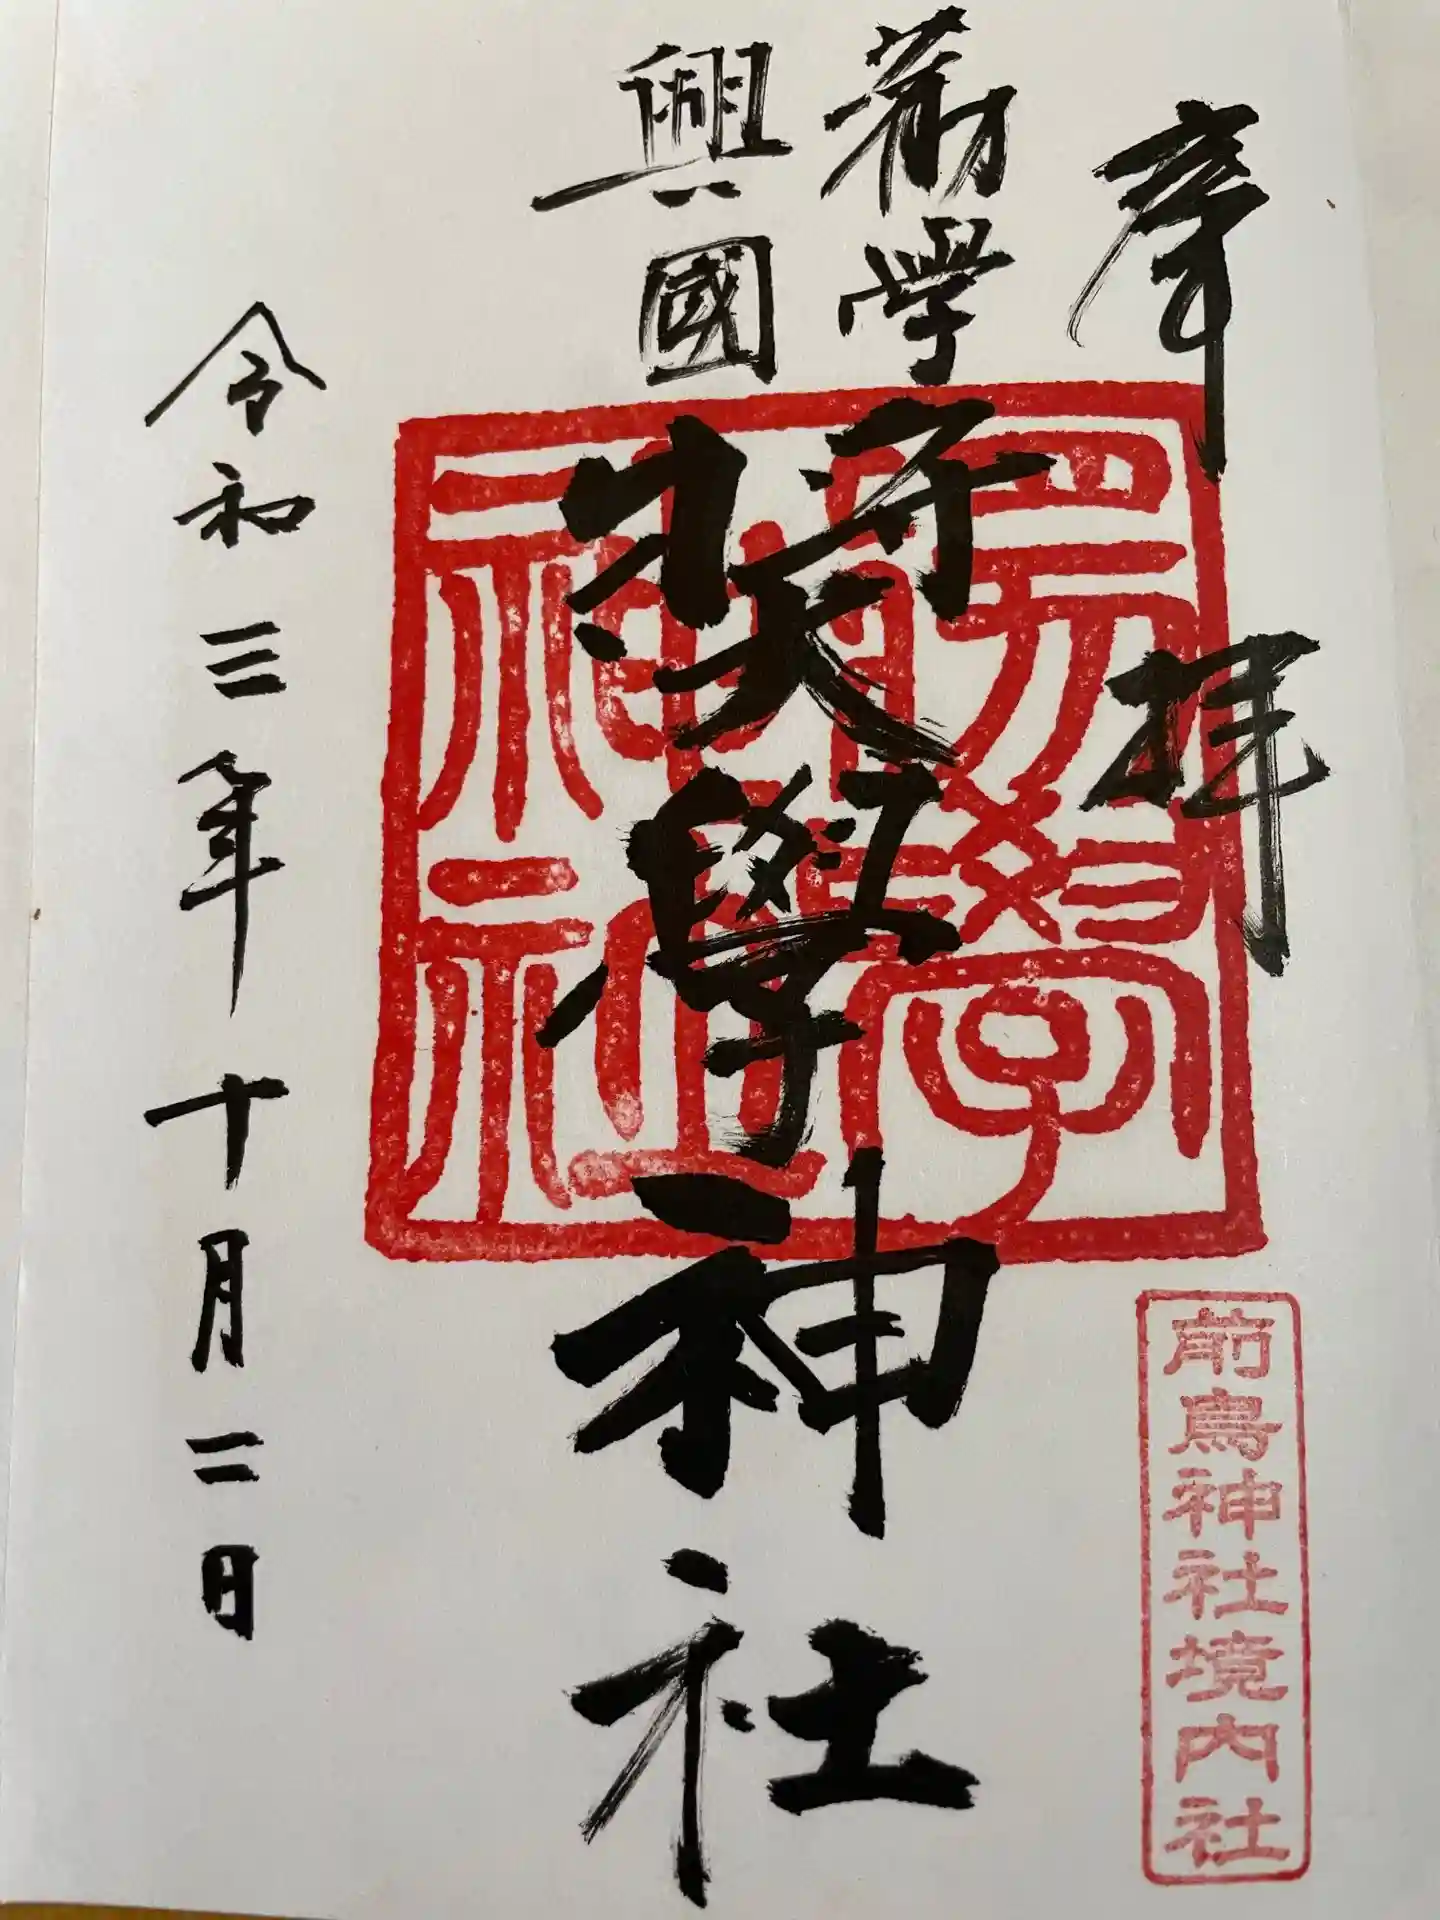 奉拝
学
興國
奬學神社
前鳥神社境内社
令和三年十月二日